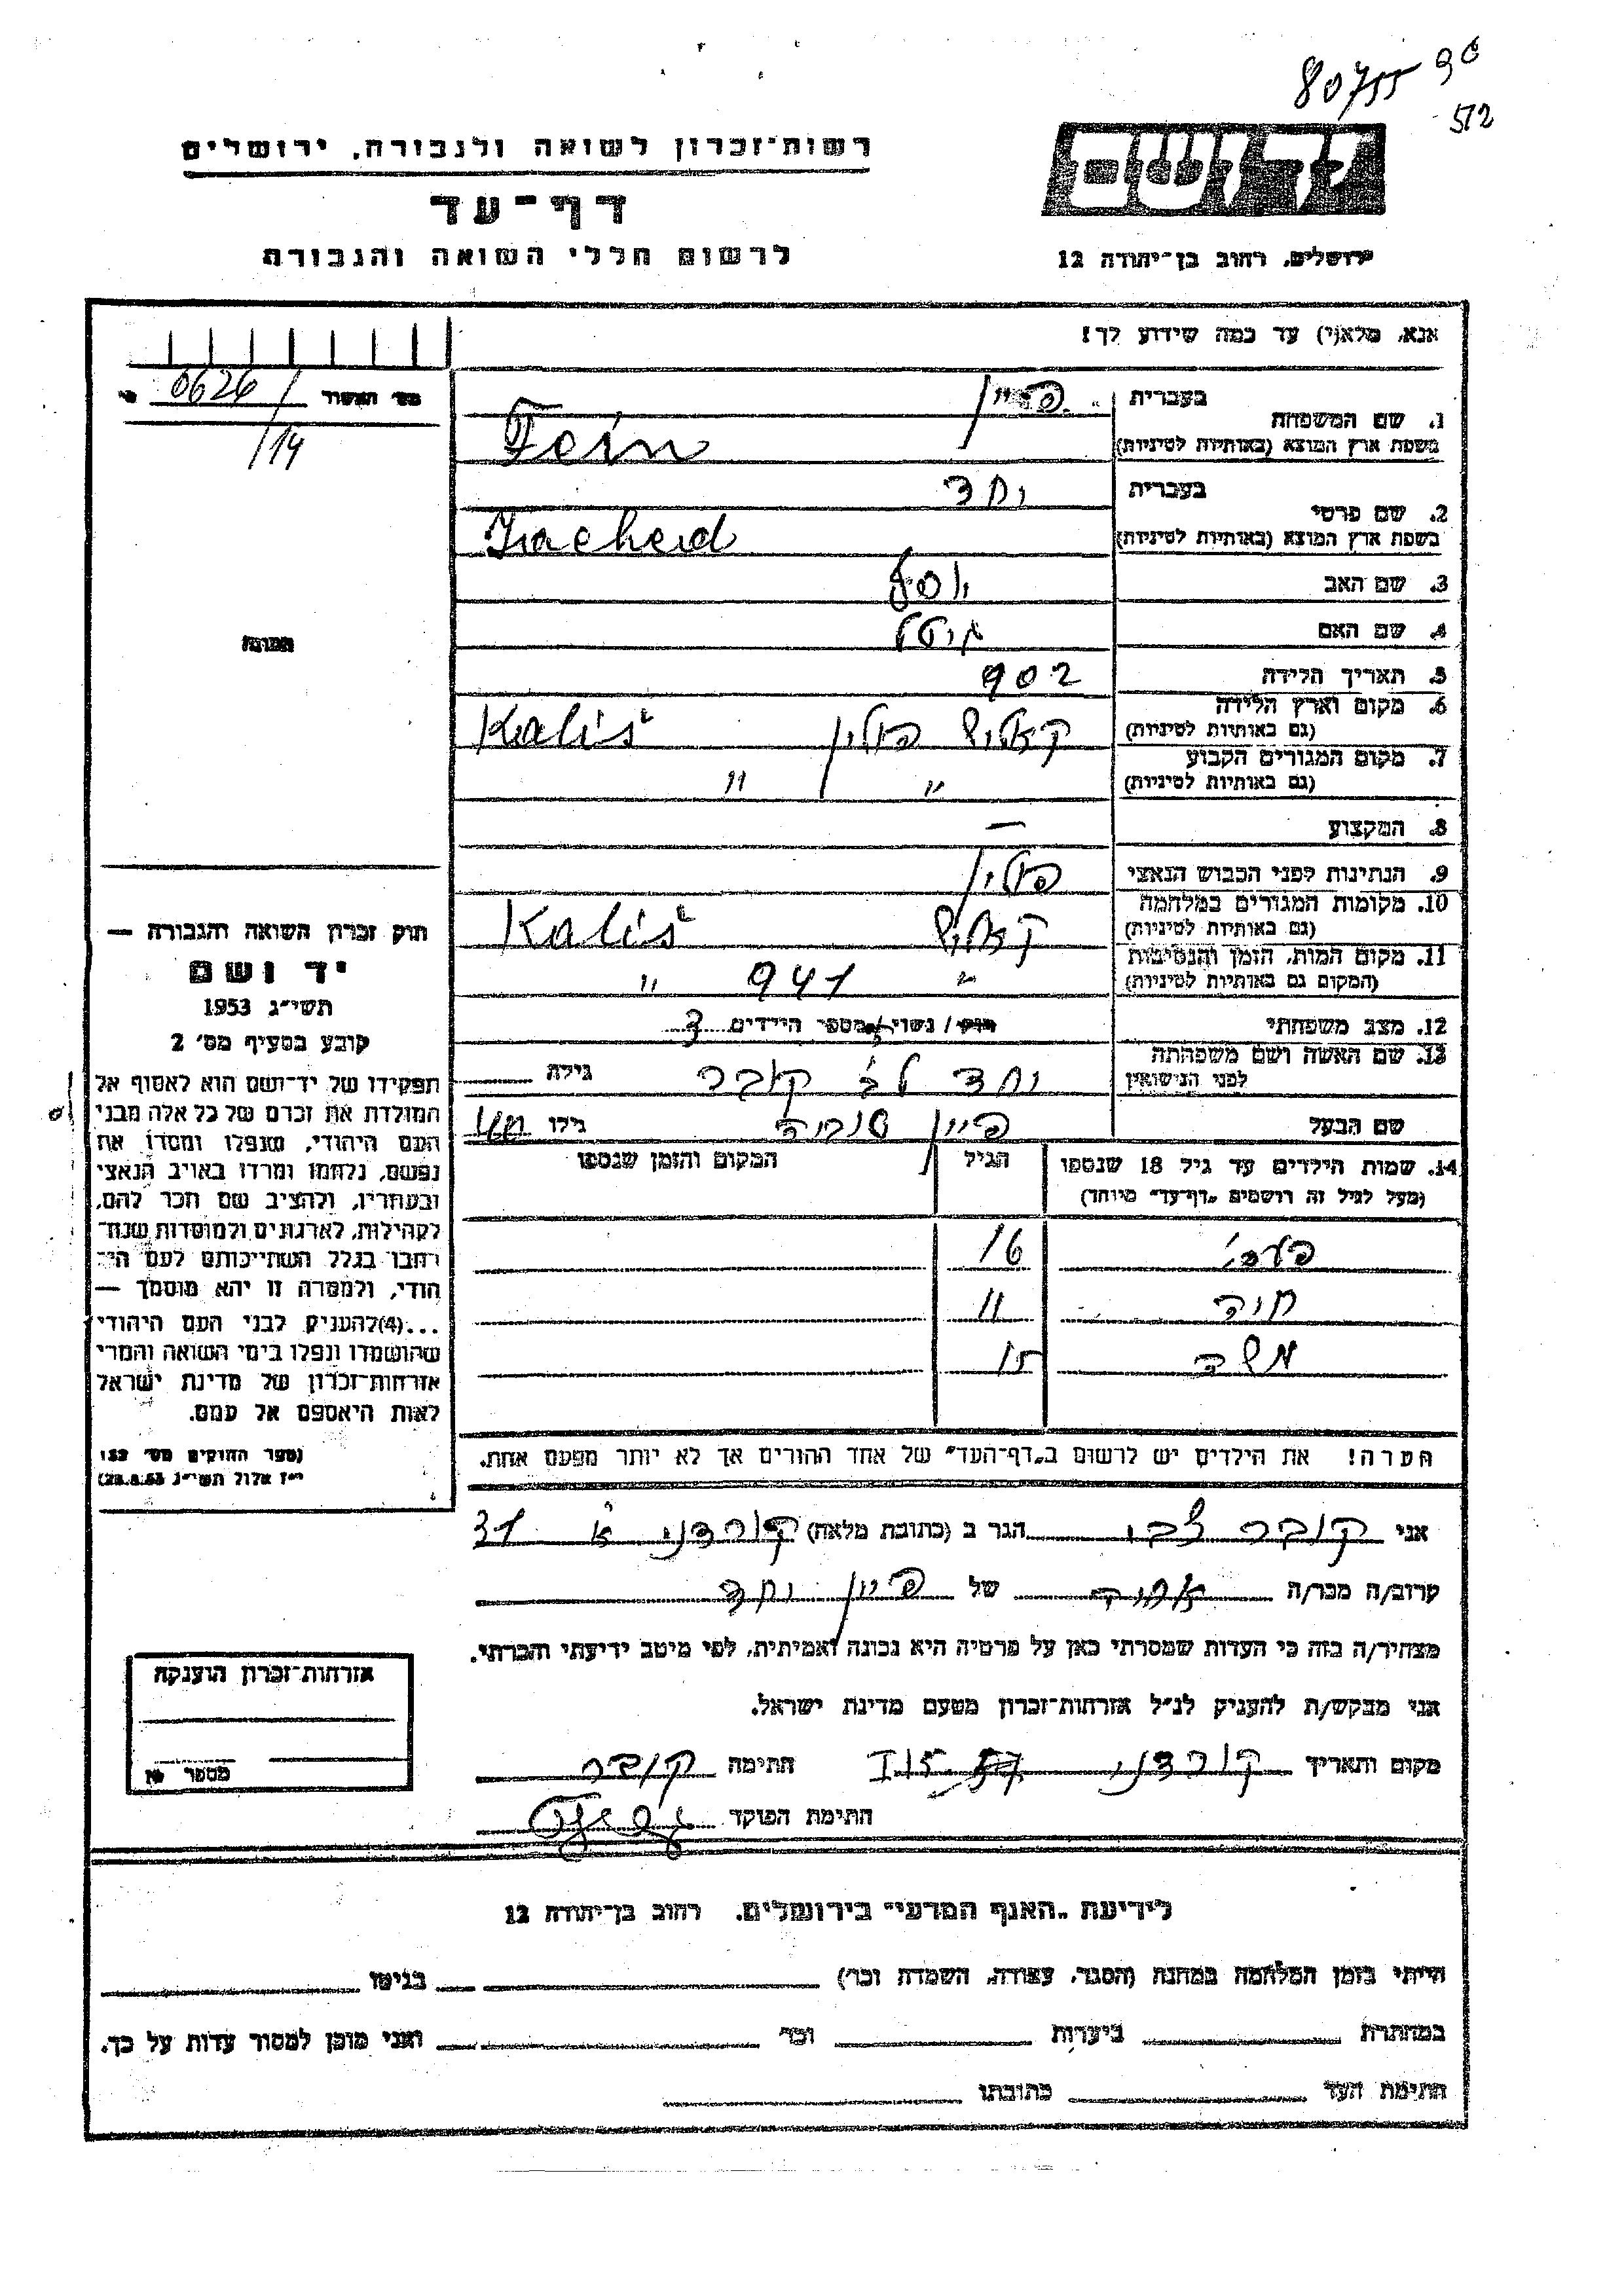 80755 96
512
רשות־זכרון לשואה ולגבורה, ירושלים
דף־עד
לרשום חללי השואה והגבורה
יד ושם
ירושלים, רחוב בן־יהודה 12
אנא, מלא(י) עד כמה שידוע לך!
מס' האשור 0626/
/14
1. שם המשפחה
בעברית פיין
בשפת ארץ המוצא (באותיות לטיניות) Fein
2. שם פרטי
בעברית יחד
בשפת ארץ המוצא (באותיות לטיניות)
3. שם האב יוסף
4. שם האם גיטל
5. תאריך הלידה 902
6. מקום וארץ הלידה (גם באותיות לטיניות) קאליש פולין Kališ
7. מקום המגורים הקבוע (גם באותיות לטיניות) " "
8. המקצוע —
9. הנתינות לפני הכבוש הנאצי פולין
10. מקומות המגורים במלחמה (גם באותיות לטיניות) קאליש Kališ
11. מקום המות, הזמן והנסיבות (המקום גם באותיות לטיניות) " 941 "
12. מצב משפחתי רווק / נשוי / מספר הילדים 3
13. שם האשה ושם משפחתה לפני הנישואין יחד לב' קובר גילה
שם הבעל פיין גילו
14. שמות הילדים עד גיל 18 שנספו
(מעל לגיל זה רושמים "דף־עד" מיוחד)
הגיל
המקום והזמן שנספו
16
חוה 11
משה 15
הערה! את הילדים יש לרשום ב"דף־העד" של אחד ההורים אך לא יותר מפעם אחת.
תמונה
חוק זכרון השואה והגבורה —
יד ושם
תשי"ג 1953
קובע בסעיף מס' 2
תפקידו של יד־ושם הוא לאסוף אל
המולדת את זכרם של כל אלה מבני
העם היהודי, שנפלו ומסרו את
נפשם, נלחמו ומרדו באויב הנאצי
ובעוזריו, ולהציב שם וזכר להם,
לקהילות, לארגונים ולמוסדות שנח־
רבו בגלל השתייכותם לעם הי־
הודי, ולמטרה זו יהא מוסמך —
...(4)להעניק לבני העם היהודי
שהושמדו ונפלו בימי השואה והמרי
אזרחות־זכרון של מדינת ישראל
לאות היאספם אל עמם.
(ספר החוקים מס' 132
י"ז אלול תשי"ג 28.8.53)
אני קובר צבי הגר ב (כתובת מלאה) קורדני א' 31
קרוב/ה מכר/ה של פיין יחד
מצהיר/ה בזה כי העדות שמסרתי כאן על פרטיה היא נכונה ואמיתית, לפי מיטב ידיעתי והכרתי.
אני מבקש/ת להעניק לנ"ל אזרחות־זכרון מטעם מדינת ישראל.
מקום ותאריך קורדני חתימה קובר
חתימת הפוקד
אזרחות־זכרון הוענקה
מספר №
לידיעת "האגף המדעי" בירושלים, רחוב בן־יהודה 12
הייתי בזמן המלחמה במחנה (הסגר, עבודה, השמדה וכו') בגיטו
במחתרת ביערות וכו' ואני מוכן למסור עדות על כך.
חתימת העד כתובתו